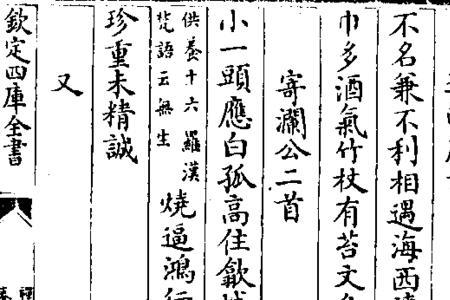 不名兼不利相遇海西
巾多酒氣竹杖有苔文
寄瀾公二首
小一頭應白孤高住歙
供養十六羅漢
梵語云無生
燒逼鴻
珍重未精誠
又
欽定四庫全書